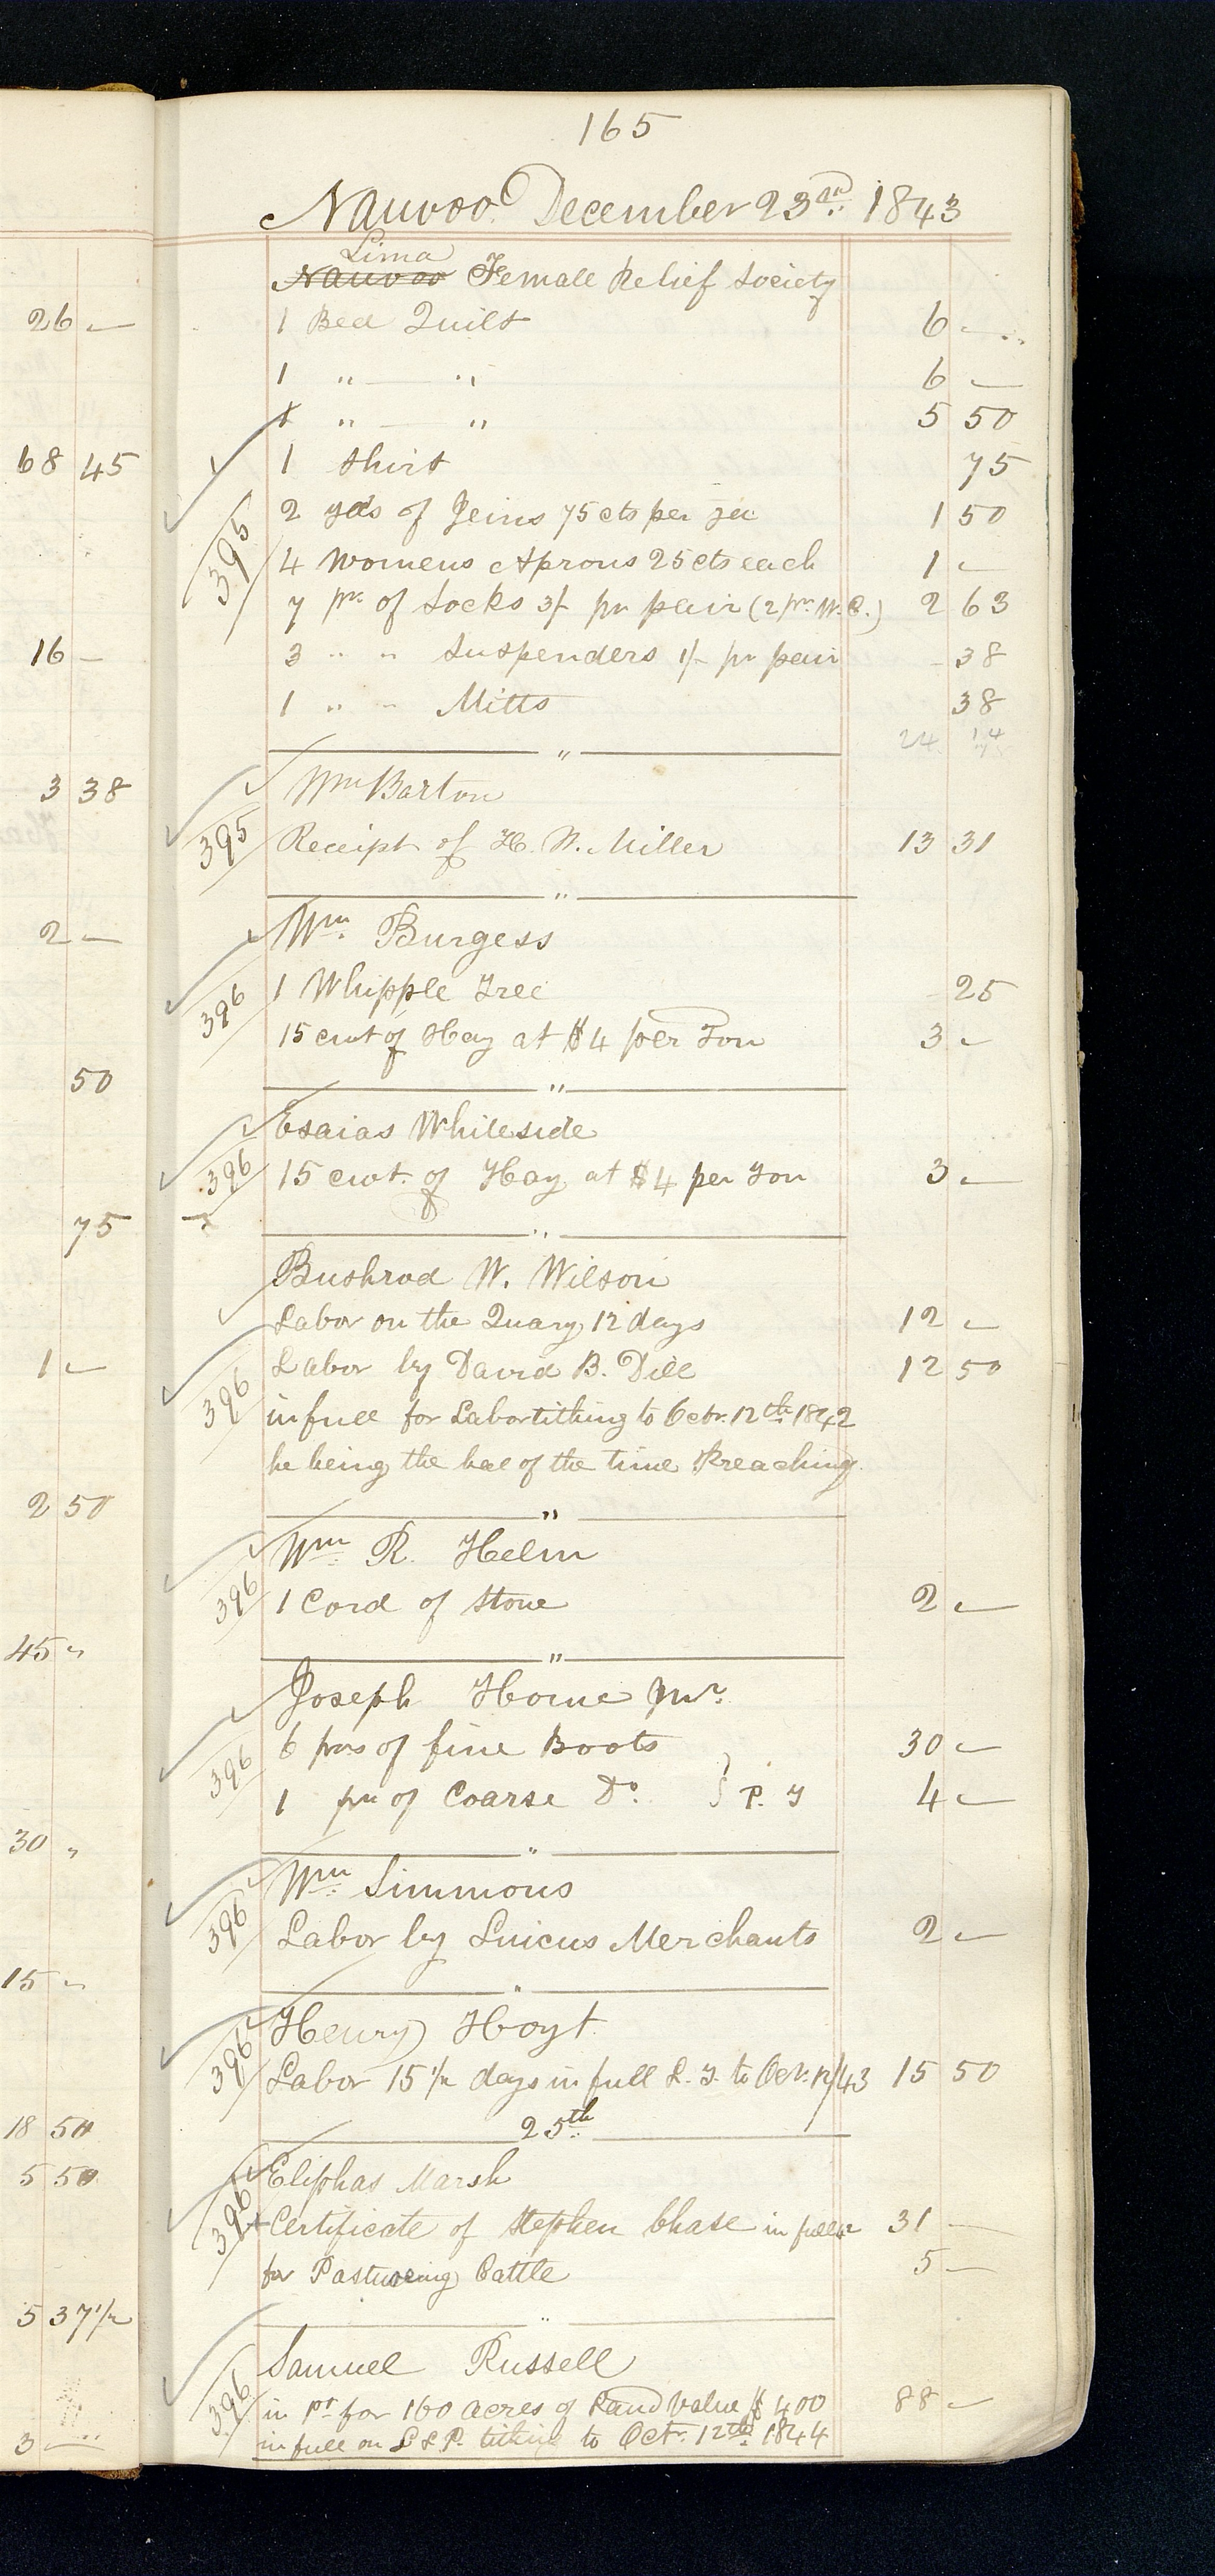 165
Nauvoo December 23rd. 1843
Lima
Nauvoo Female Relief Society
26 —
1 Bed Quilt 6 —
1 " — " 6 —
1 " — " 5 50
68 45
1 Shirt 75
2 yds of Jeins 75 cts per yd 1 50
395
4 Womens Aprons 25 cts each 1 —
7 pr. of Socks 3/- pr pair (2 pr. W.C.) 2 63
16 —
3 " " Suspenders 1/- pr pair 38
1 " " Mitts 38
24 14
3 38
Wm Barton
395
Receipt of H. W. Miller 13 31
2 —
Wm. Burgess
396
1 Whipple Tree 25
15 cwt of Hay at $4 per Ton 3 —
50
Esaias Whiteside
396
15 cwt. of Hay at $4 per Ton 3 —
75
Bushrod W. Wilson
Labor on the Quary 12 days 12 —
1 —
Labor by David B. Dille 12 50
396
in full for Labor tithing to Octr. 12th. 1842
he being the bal of the time Preaching
2 50
Wm. R. Helm
396
1 Cord of Stone 2 —
45 "
Joseph Horne Jnr.
6 prs of fine Boots 30 —
396
1 pr of Coarse Do. } P. T 4 —
30 "
Wm. Simmons
396
Labor by Luicus Merchants 2 —
15 "
Henry Hoyt
396
Labor 15 1/2 days in full L. T. to Oct. 12/43 15 50
25th.
18 50
5 50
Eliphas Marsh
396
Certificate of Stephen Chase in full 31 —
for Pasturing Cattle 5 —
5 37 1/2
Samuel Russell
396
in pt for 160 acres of Land Value $400 88 —
in full on L & P. tithing to Octr. 12th. 1844
3 —